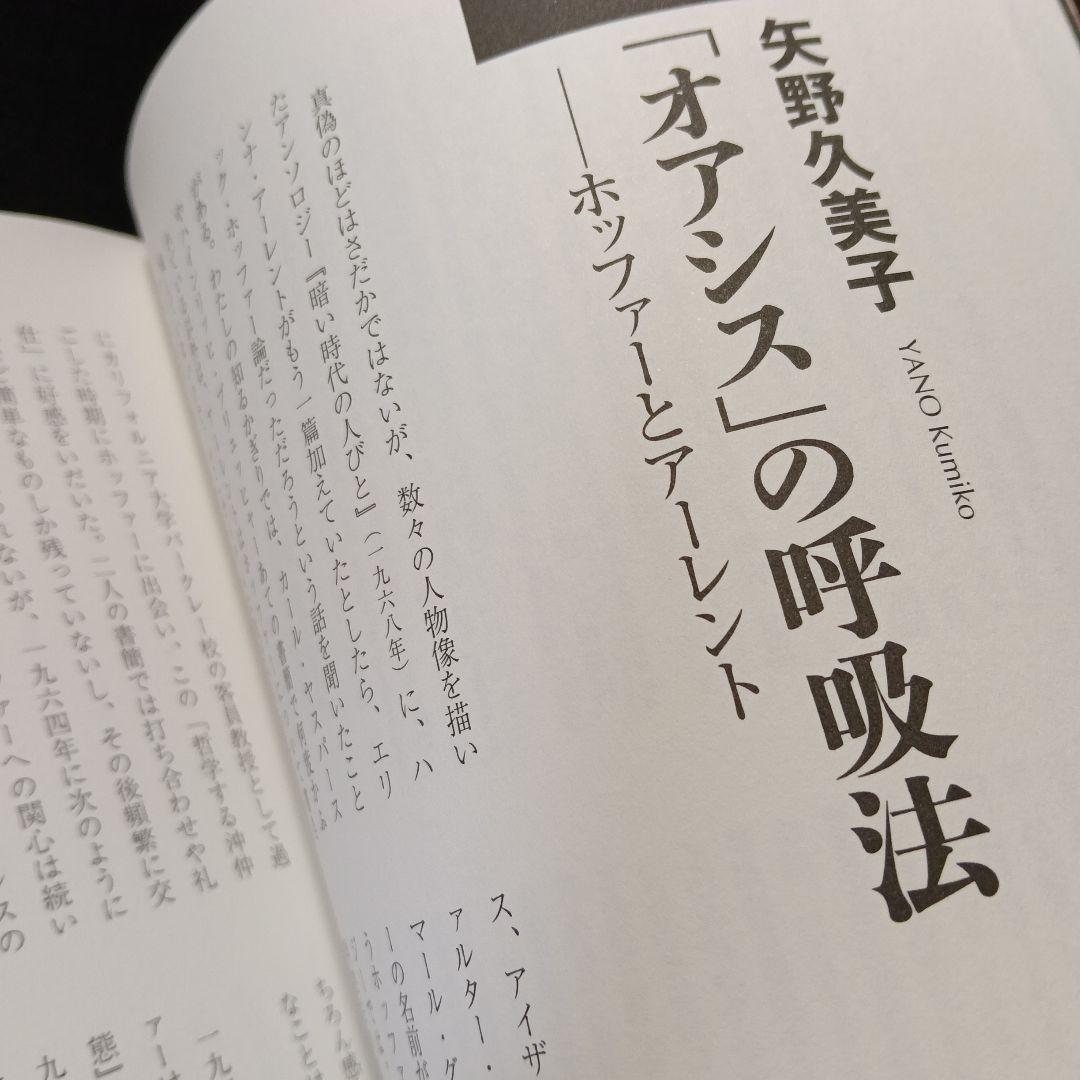 矢野久美子
YANO Kumiko
「オアシス」の呼吸法
——ホッファーとアーレント
真偽のほどはさだかではないが、数々の人物像を描い
たアンソロジー『暗い時代の人びと』（一九六八年）に、ハ
ンナ・アーレントがもう一篇加えていたとしたら、エリ
ック・ホッファー論だっただろうという話を聞いたこと
がある。わたしの知るかぎりでは、カール・ヤスパース
ス、アイザ
アルター・
マール・グ
ーの名前が
うホッファ
にカリフォルニア大学バークレー校の客員教授として過
ごした時期にホッファーに出会い、この「哲学する沖仲
仕」に好感をいだいた。二人の書簡では打ち合わせや礼
ど簡単なものしか残っていないし、その後頻繁に交
られないが、一九六四年に次のように
ファーへの関心は続い
スの
ちろん感
なことは
一九
アーは
態』
九